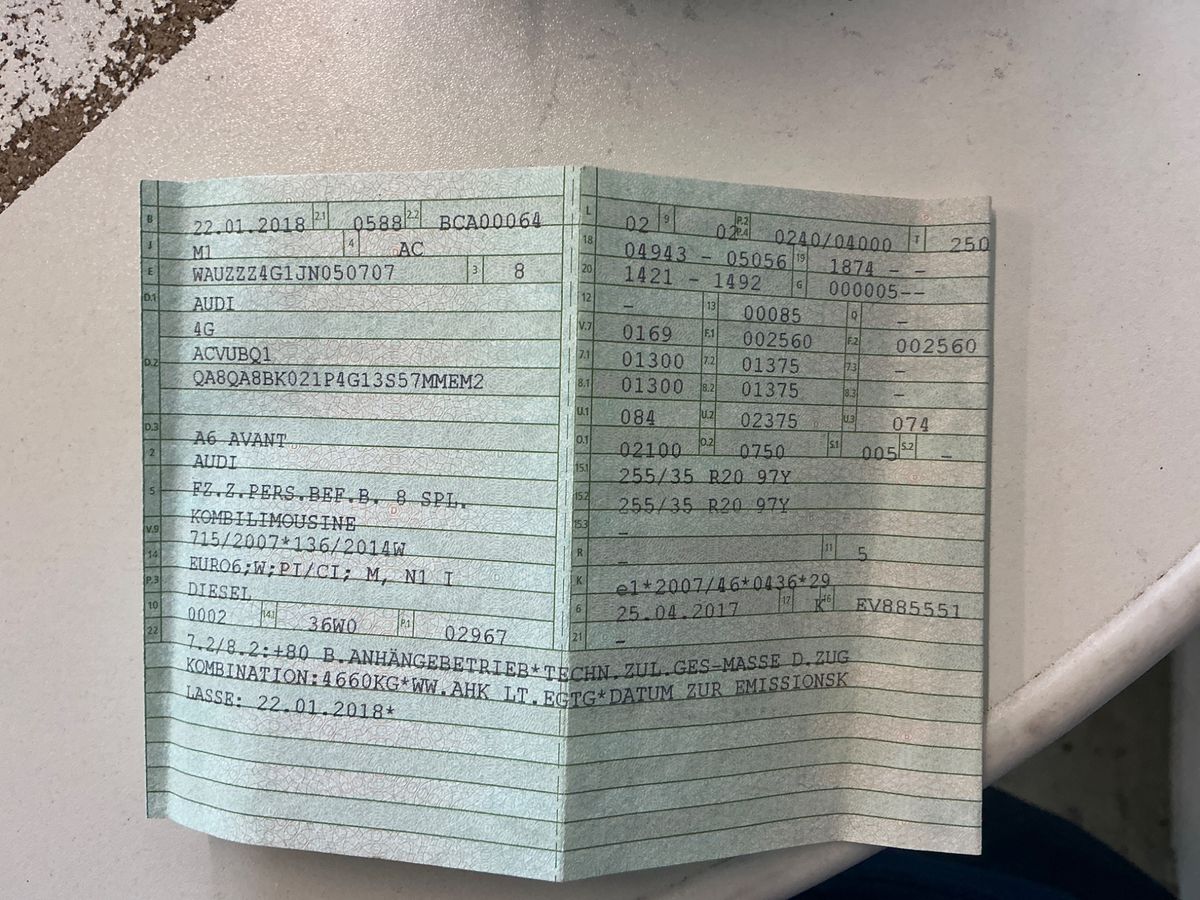 B 22.01.2018 2.1 0588 2.2 BCA00064
J M1 4 AC
E WAUZZZ4G1JN050707 3 8
D.1 AUDI
4G
D.2 ACVUBQ1
QA8QA8BK021P4G13S57MMEM2
D.3 A6 AVANT
2 AUDI
5 FZ.Z.PERS.BEF.B. 8 SPL.
KOMBILIMOUSINE
V.9 715/2007*136/2014W
14 EURO6;W;PI/CI; M, N1 I
P.3 DIESEL
10 0002 14.1 36W0 P.1 02967
L 02 9 02 P.2 P.4 0240/04000 T 250
18 04943 - 05056 19 1874 - -
20 1421 - 1492 G 000005--
12 - 13 00085 Q -
V.7 0169 F.1 002560 F.2 002560
7.1 01300 7.2 01375 7.3 -
8.1 01300 8.2 01375 8.3 -
U.1 084 U.2 02375 U.3 074
O.1 02100 O.2 0750 S.1 005 S.2 -
15.1 255/35 R20 97Y
15.2 255/35 R20 97Y
15.3 -
R 11 5
K e1*2007/46*0436*29
6 25.04.2017 17 K 16 EV885551
21 -
22 7.2/8.2:+80 B.ANHÄNGEBETRIEB*TECHN.ZUL.GES-MASSE D.ZUG
KOMBINATION:4660KG*WW.AHK LT.EGTG*DATUM ZUR EMISSIONSK
LASSE: 22.01.2018*